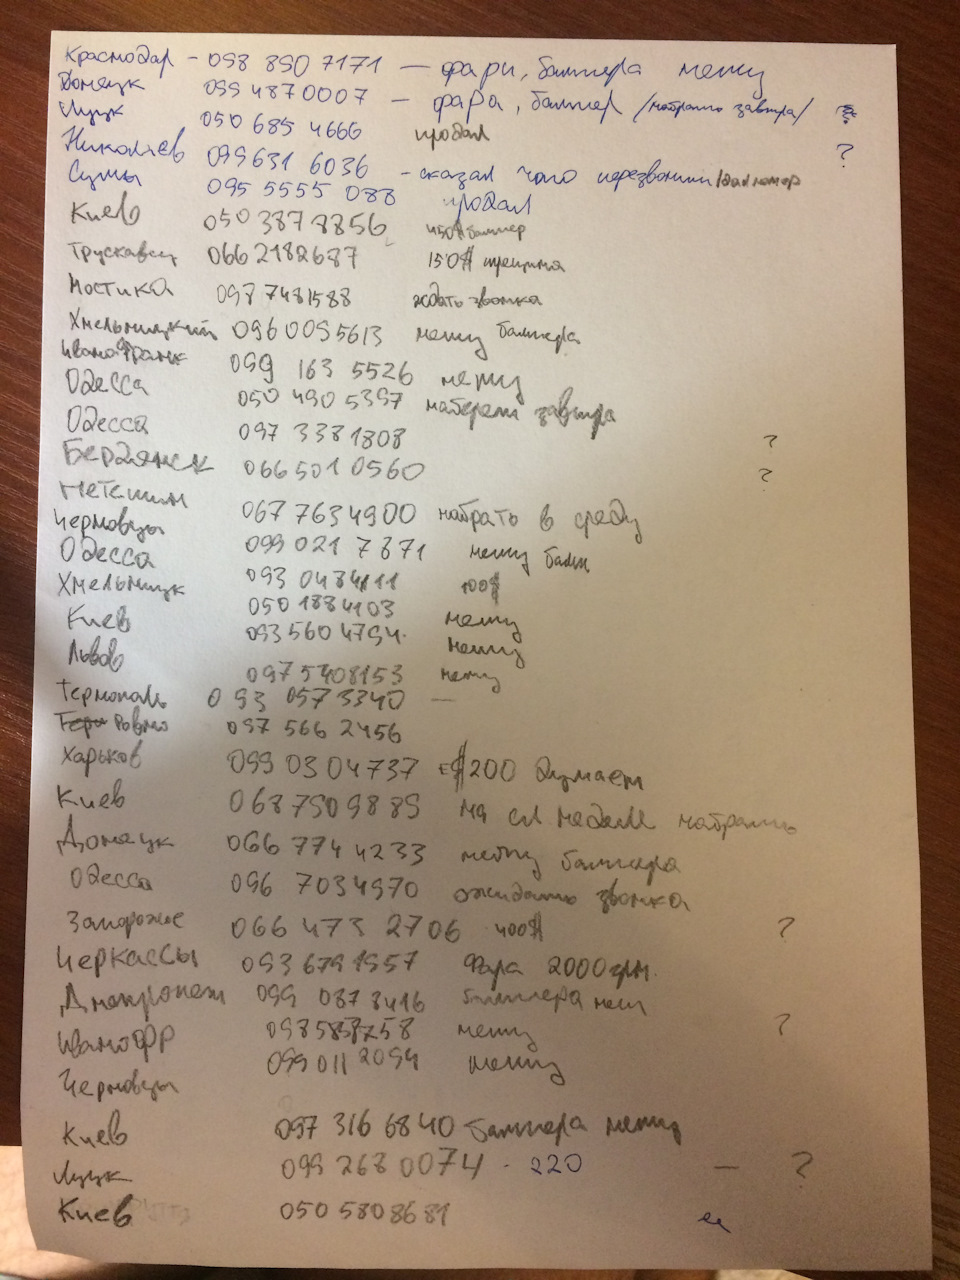 Краснодар - 098 890 7171 — фары, бампера нету
Донецк 099 4870007 — фара, бампер /набрать завтра/
Луцк 050 685 4666 продал
Николаев 099631 6036 - сказал что перезвонит/дал номер ?
Сумы 095 5555 088 продал
Киев 050 387 8856 450$ бампер
Трускавец 066 2182687 150$ трещина
Мостика 097 7481588 ждать звонка
Хмельницкий 096 0095613 нету бампера
Иванофранк 099 163 5526 нету
Одесса 050 490 5397 наберет завтра
Одесса 097 3381808 ?
Бердянск 066 501 0560 ?
Нетешин 067 7634900 набрать в среду
Черновцы 099 021 7871 нету бамп
Одесса 093 0484111 100$
Хмельницк 050 1884103 нету
Киев 093 560 4794 нету
Львов 097 5408153 нету
Тернополь 093 057 3340 —
Ровно 097 566 2456
Харьков 099 03 04737 $200 думает
Киев 068 7509889 на сл неделе набрать
Донецк 066 774 4233 нету бампера
Одесса 096 7034970 ожидать звонка
Запорожье 066 473 2706 400$ ?
Черкассы 093 679 1957 Фара 2000грн.
Днепропет 099 087 8416 бампера нет
Иванофр 098 5858758 нету ?
Черновцы 099 011 2094 нету
Киев 097 316 6840 бампера нету
Луцк 099 268 0074 - 220 — ?
Киев 050 5808681